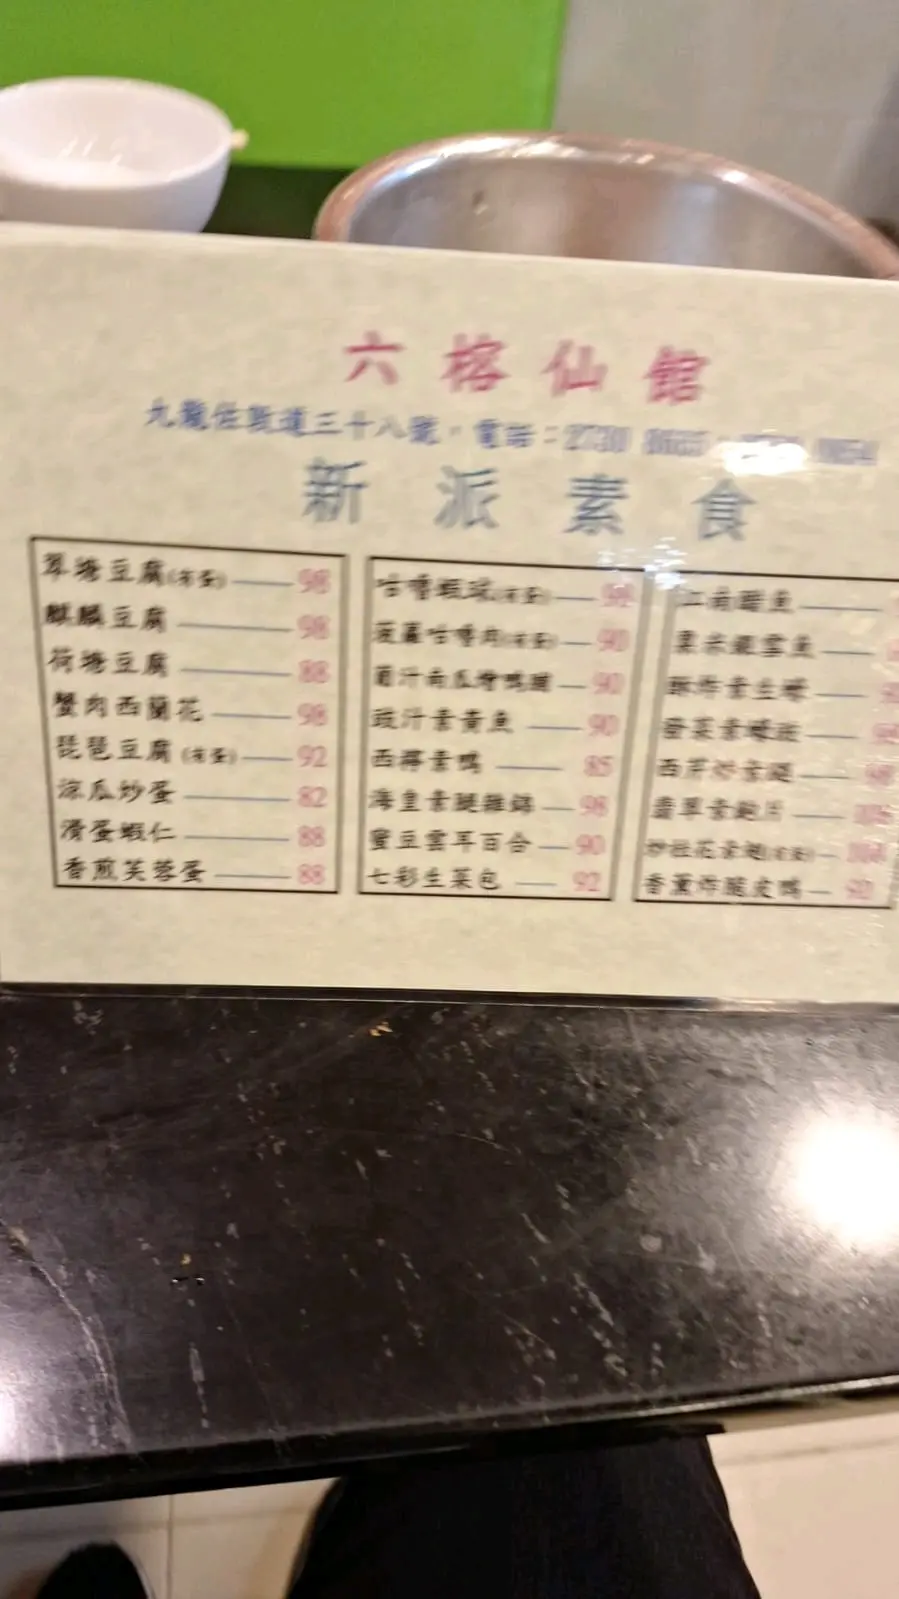 六榕仙館
九龍佐敦道三十八號・電話：2730
新派素食
翠塘豆腐(有蛋) 98
麒麟豆腐 98
荷塘豆腐 88
蟹肉西蘭花 98
琵琶豆腐(有蛋) 92
涼瓜炒蛋 82
滑蛋蝦仁 88
香煎芙蓉蛋 88
咕嚕蝦球(有蛋) 98
菠蘿咕嚕肉(有蛋) 90
南瓜燴鴨 90
豉汁素黃魚 90
西檸素鴨 85
海皇素腿雜錦 98
蜜豆雲耳百合 90
七彩生菜包 92
江南醋魚
粟米銀雪魚
酥炸素生蠔
發菜素蠔豉
西芹炒素腿
翡翠素鮑片
炒桂花素翅(有蛋)
香薰炸脆皮鴨 92